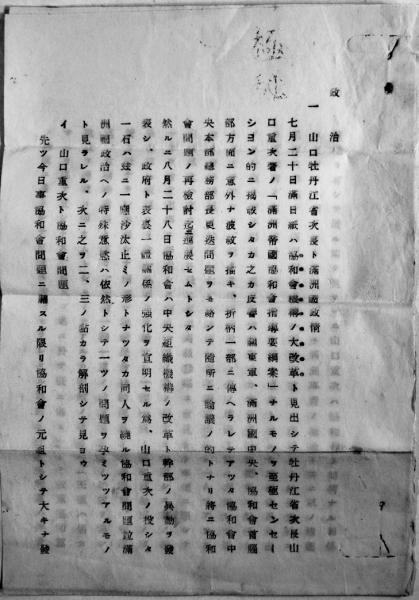 極秘
政治
一 山口牡丹江省次長ト滿洲國政情
七月二十日滿日紙ハ「協和會機構ノ大改革」ト見出シテ牡丹江省次長山
口重次著ノ「滿洲帝國協和會指導要綱案」ナルモノヲ至極センセー
シヨン的ニ揭載シタカ之カ反響ハ關東軍、滿洲國中央、協和會首腦
部方面ニ意外ナ波紋ヲ描キ、折柄一部ニ傳ヘラレテアツタ協和會中
央本部總務部長更迭問題ヲモ絡ンテ隨所ニ論議ノ的トナリ將ニ協和
會問題ノ再檢討迄進展セムトシタ
然ルニ八月二十八日協和會ハ中央組織機構ノ改革ト幹部ノ異動ヲ發
表シ、政府ト表裏一體關係ノ強化ヲ宣明セル爲、山口重次ノ投シタ
一石ハ玆ニ一應沙汰止ミノ形トナツタカ同人ヲ繞ル協和會問題竝滿
洲國政治ヘノ特殊意慾ハ依然トシテ一ツノ問題ヲ孕ミツツアルモノ
ト見ラレル、次ニ之ヲ二、三ノ點カラ解剖シテ見ヨウ
イ 山口重次ト協和會問題
先ツ今日事協和會問題ニ關スル限リ協和會ノ元祖トシテ大キナ發